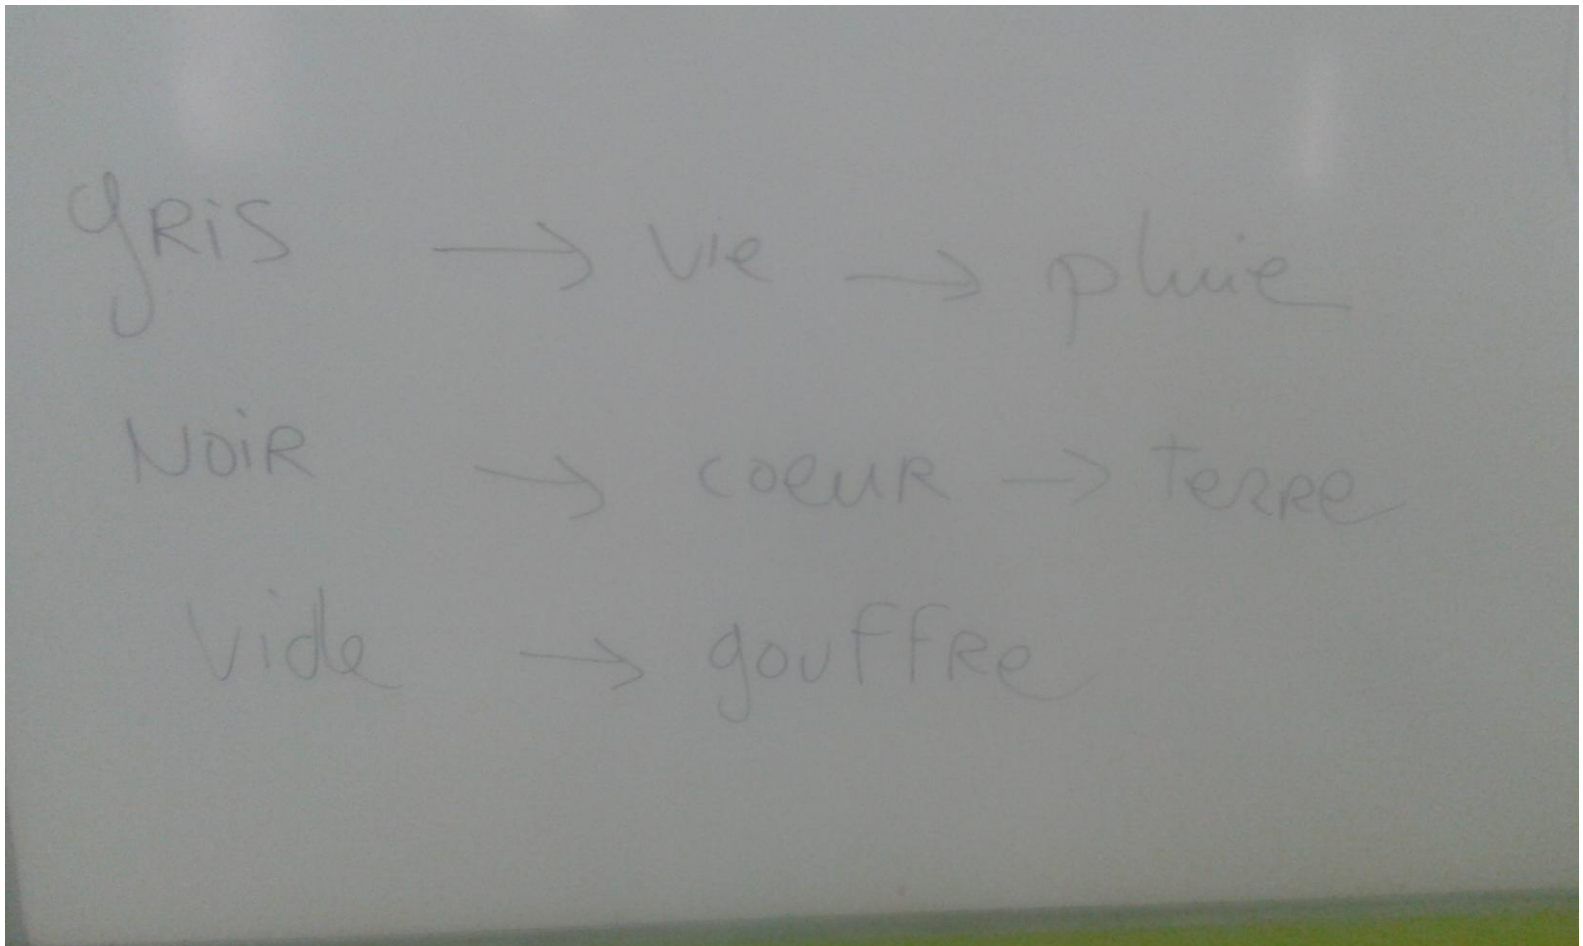 gRiS → Vie → pluie
NOiR → coeuR → TeRRe
Vide → gouffRe